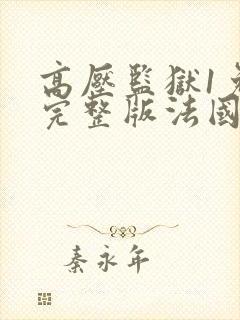 高壓監獄1
完整版法國
秦永年